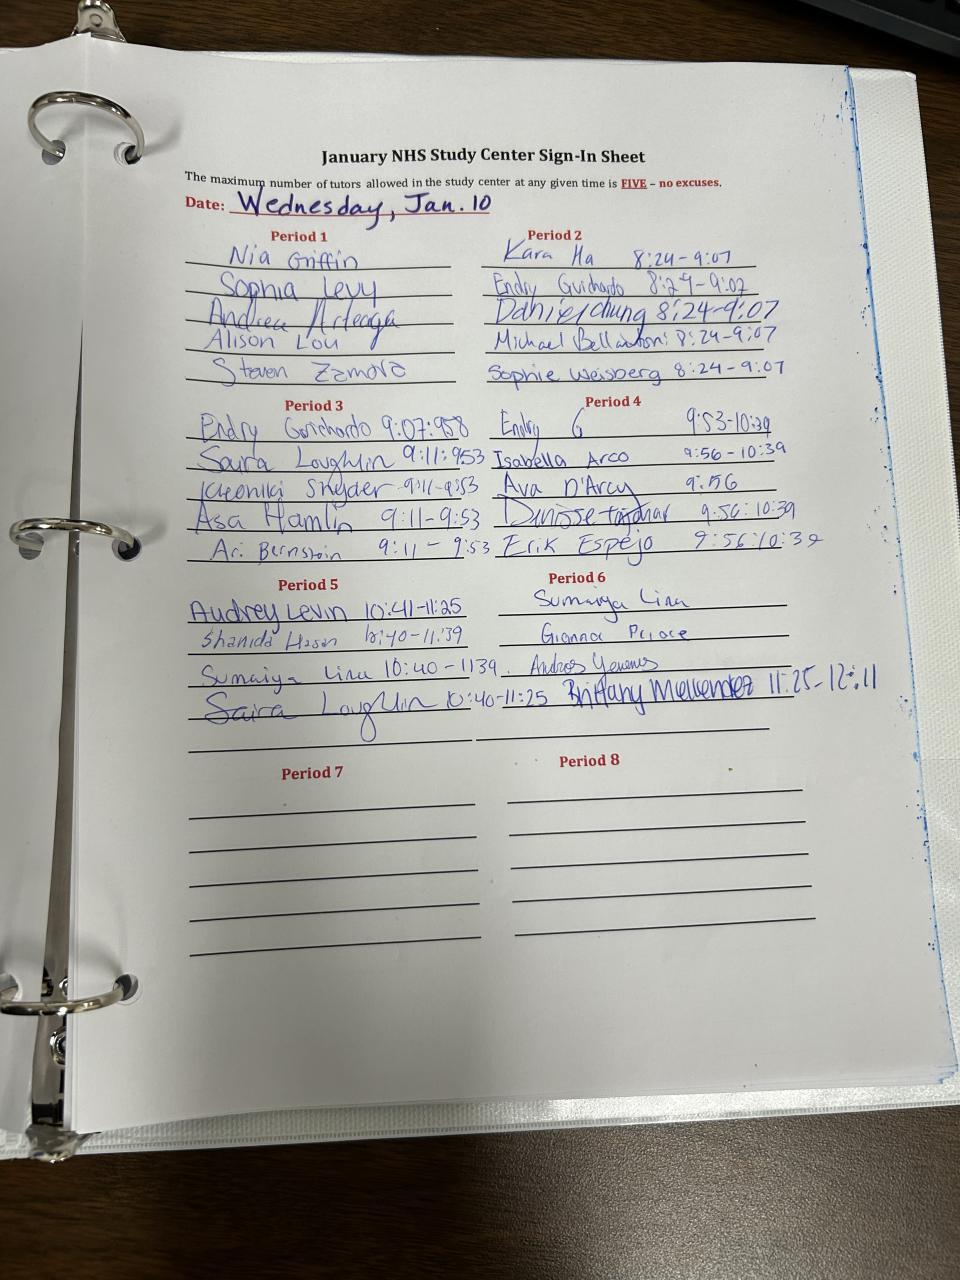 January NHS Study Center Sign-In Sheet
The maximum number of tutors allowed in the study center at any given time is FIVE – no excuses.
Date: Wednesday, Jan. 10
Period 1
Nia Griffin
Sophia Levy
Andrea Arteaga
Alison Lou
Steven Zamora
Period 2
Kara Ha 8:24-9:07
Endry Guichardo 8:24-9:07
Daniel chung 8:24-9:07
Michael Bellantoni 8:24-9:07
Sophie Weisberg 8:24-9:07
Period 3
Endry Guichardo 9:07:958
Saira Loughlin 9:11:953
Kleoniki Snyder 9:11-9:53
Asa Hamlin 9:11-9:53
Ari Bernstein 9:11-9:53
Period 4
Endry G 9:53-10:39
Isabella Arco 9:56-10:39
Ava D'Arcy 9:56
9:56:10:39
Erik Espejo 9:56:10:39
Period 5
Audrey Levin 10:41-11:25
Shanida Hasan 10:40-11:39
Sumaiya Lina 10:40-1139
Saira Loughlin 10:40-11:25
Period 6
Sumaiya Lina
Gianna
Andres
Brittany Mellendez 11:25-12:11
Period 7
Period 8